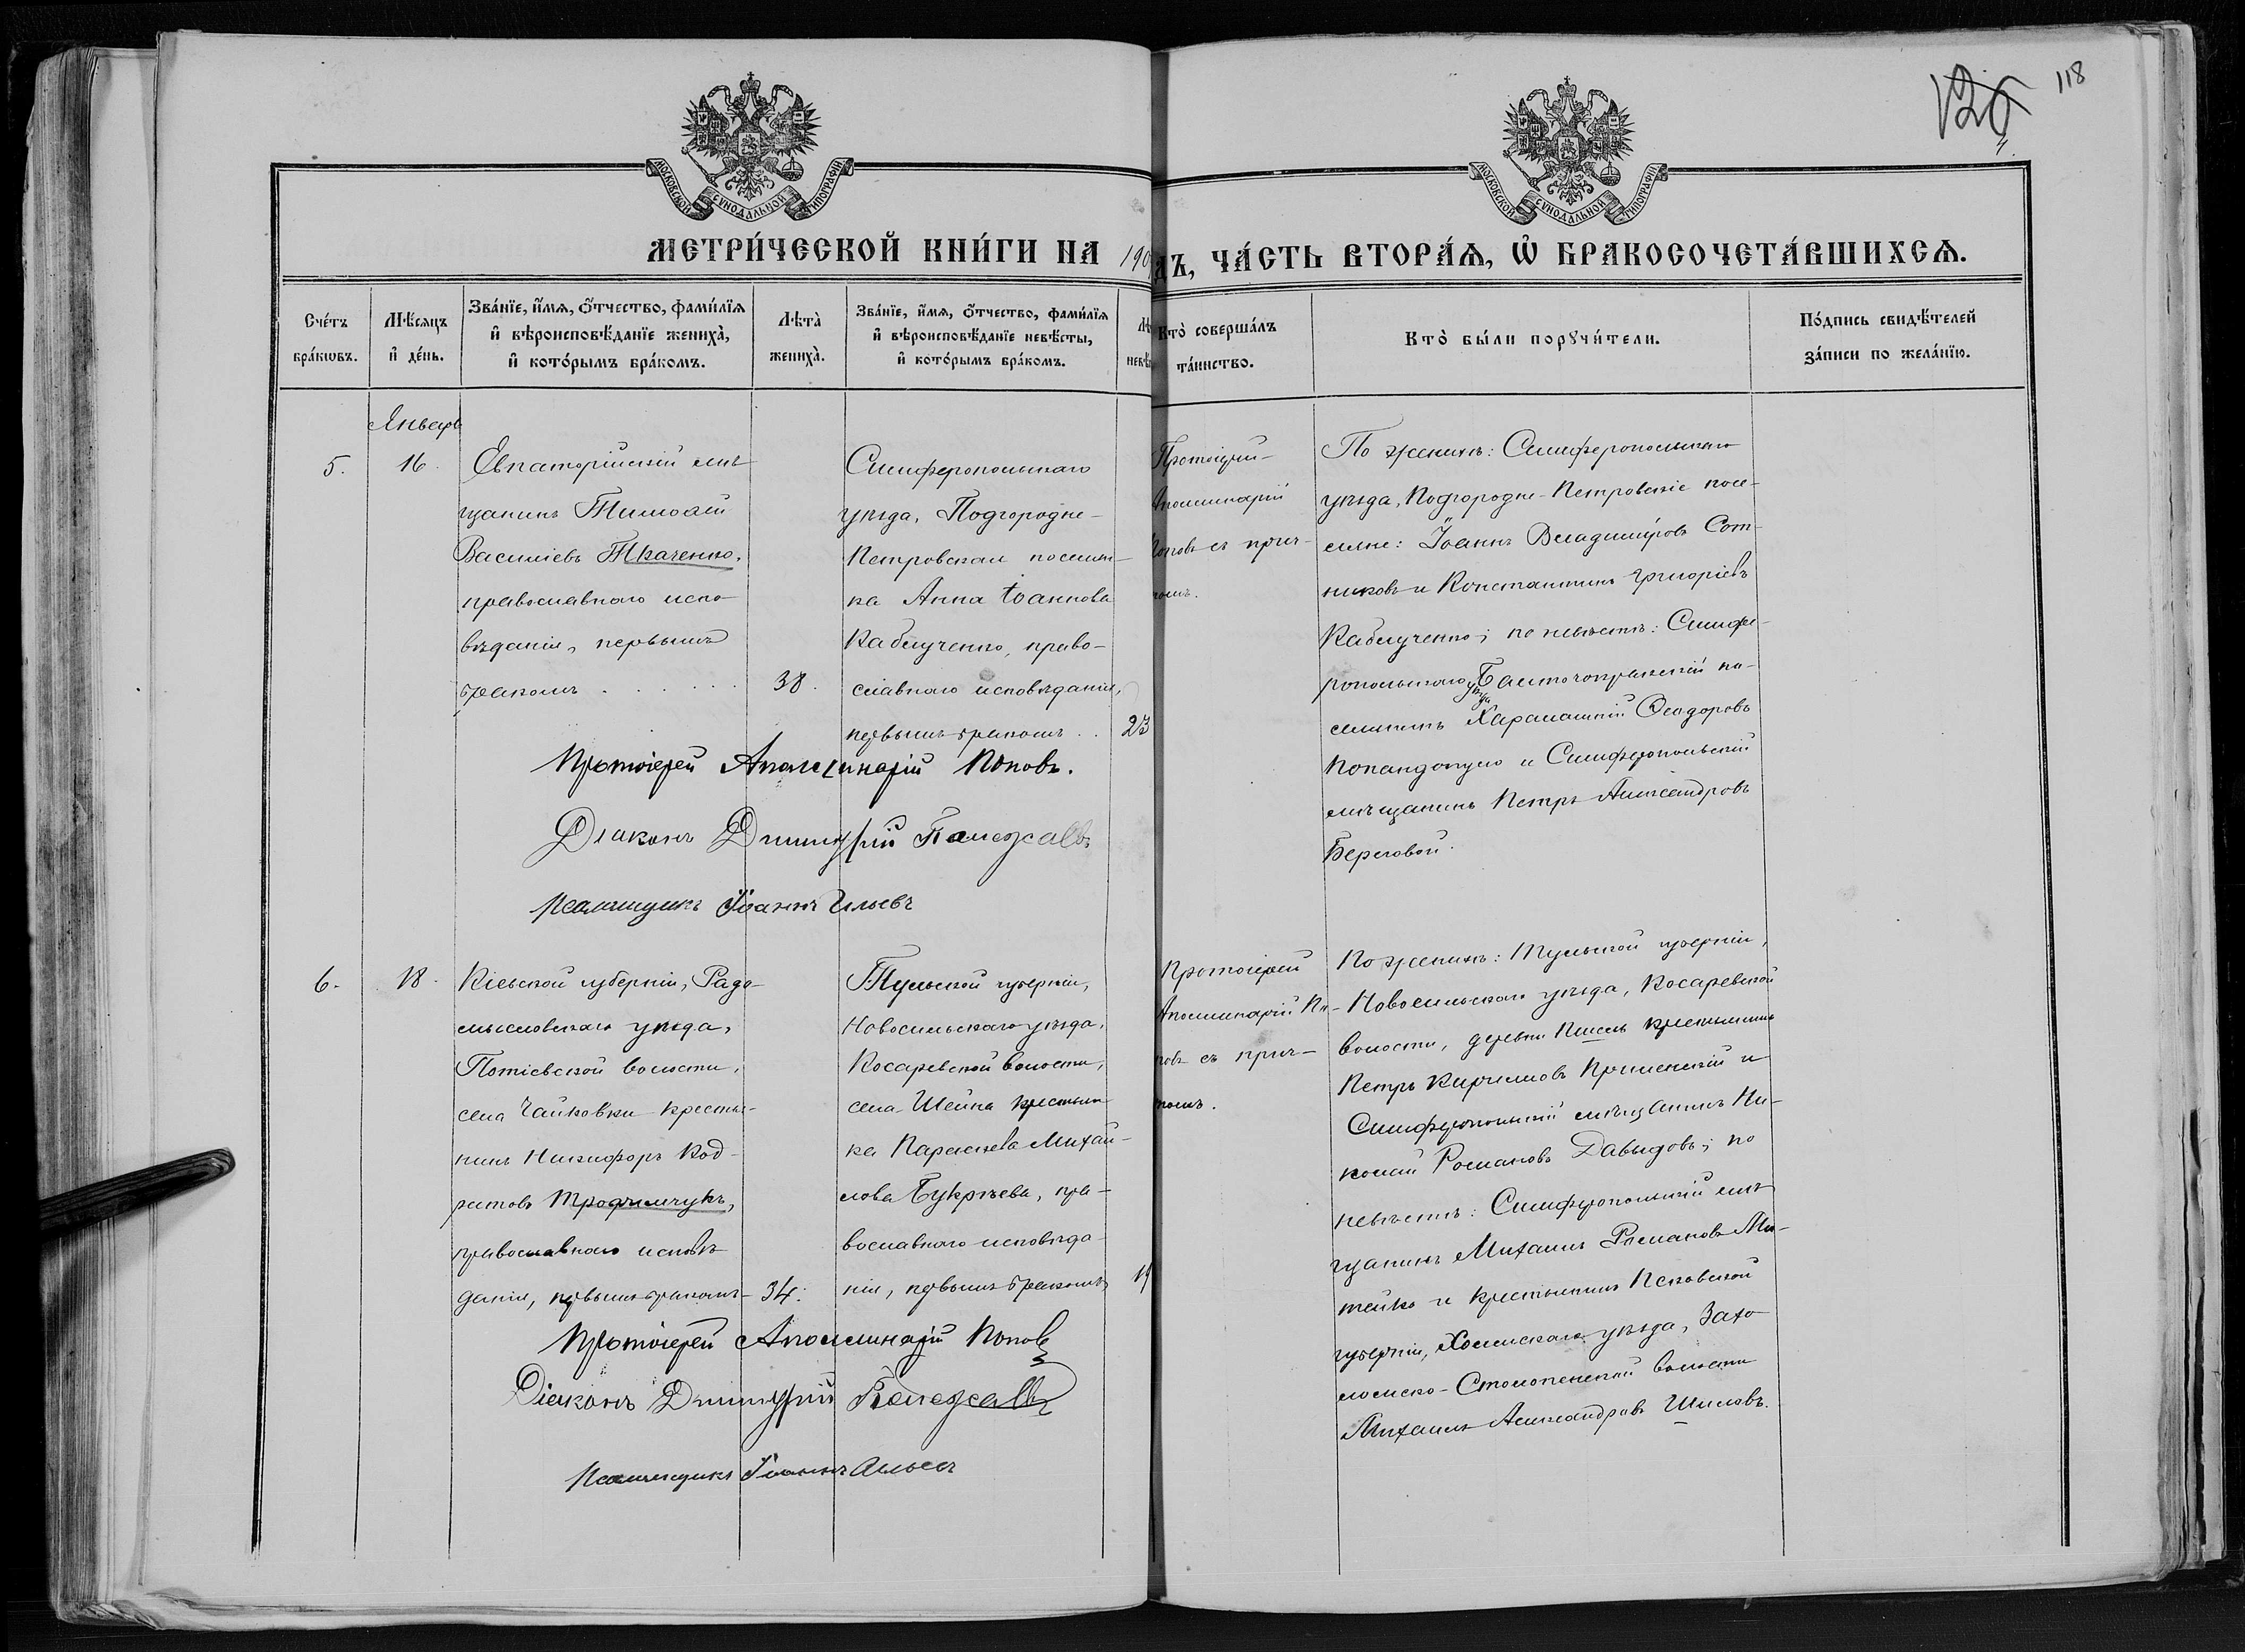 118
МОСКОВСКОЙ СУНОДАЛЬНОЙ ТИПОГРАФІИ
МОСКОВСКОЙ СУНОДАЛЬНОЙ ТИПОГРАФІИ
МЕТРИ́ЧЕСКОЙ КНИ́ГИ НА 190
ДЪ, ЧА́СТЬ ВТОРА́Ѧ, Ѽ БРАКОСОЧЕТА́ВШИХСѦ.
Сче́тъ бра́кѡвъ.
Мѣ́сяцъ и҆ де́нь.
Зва́нїе, и҆́мѧ, ѻ҆́тчество, фами́лїѧ
и҆ вѣроисповѣ́данїе жениха̀,
и҆ кото́рымъ бра́комъ.
Лѣта̀ жениха̀.
Зва́нїе, и҆́мѧ, ѻ҆́тчество, фами́лїѧ
и҆ вѣроисповѣ́данїе невѣ́сты,
и҆ кото́рымъ бра́комъ.
Лѣ
невѣ
Кто̀ соверша́лъ
та́инство.
Кто̀ бы́ли порꙋчи́тели.
По́дпись свидѣ́телей
за́писи по жела́нїю.
Январь
5.
16.
Евпаторійскій мѣ
щанинъ Тимоѳей
Василіевъ Ткаченко,
православнаго испо
вѣданія, первымъ
бракомъ . . . . . .
38.
Симферопольскаго
уѣзда, Подгородне-
Петровская поселян-
ка Анна Іоаннова
Каблученко, право-
славнаго исповѣданія,
первымъ бракомъ . .
23
Протоіерей
Аполлинарій
Поповъ съ прич-
томъ.
По женихѣ: Симферопольскаго
уѣзда, Подгородне-Петровскіе посе-
ляне: Іоаннъ Владиміровъ Сот-
никовъ и Константинъ Григоріевъ
Каблученко; по невѣстѣ: Симфе-
ропольскаго уѣзда
селянинъ Харлампій Ѳеодоровъ
Попандопуло и Симферопольскій
мѣщанинъ Петръ Александровъ
Береговой.
Протоіерей Аполлинарій Поповъ.
Діаконъ Димитрій
Псаломщикъ Іоаннъ Ильевъ
6.
18.
Кіевской губерніи, Радо-
мысловскаго уѣзда,
Потіевской волости,
села Чайковки крестья-
нинъ Никифоръ Код-
ратовъ Трофимчукъ,
православнаго исповѣ
данія, первымъ бракомъ
34.
Тульской губерніи,
Новосильскаго уѣзда,
Косаревской волости,
села Шейна крестьян
ка Параскева Михай-
лова Букрѣева, пра-
вославнаго исповѣда-
нія, первымъ бракомъ
19
Протоіерей
Аполлинарій По-
повъ съ прич-
томъ.
По женихѣ: Тульской губерніи,
Новосильскаго уѣзда, Косаревской
волости, деревни крестьянинъ
Петръ Кирилловъ и
Симферопольскій мѣщанинъ Ни-
колай Романовъ Давыдовъ; по
невѣстѣ: Симферопольскій мѣ
щанинъ Михаилъ Романовъ Ми-
тейко и крестьянинъ Псковской
губерніи, Холмскаго уѣзда,
волости
Михаилъ Александровъ Шиловъ.
Протоіерей Аполлинарій Поповъ
Діаконъ Димитрій
Псаломщикъ Іоаннъ Ильевъ